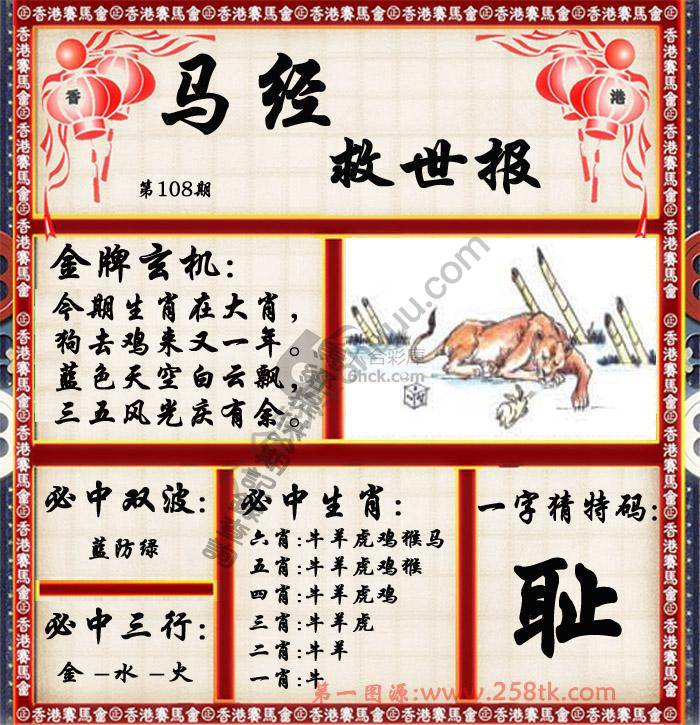 香港賽馬會
香
港
马经
救世报
第108期
金牌玄机:
今期生肖在大肖，
狗去鸡来又一年。
蓝色天空白云飘，
三五风光庆有余。
必中双波:
蓝防绿
必中三行:
金 –水 –火
必中生肖:
六肖:牛羊虎鸡猴马
五肖:牛羊虎鸡猴
四肖:牛羊虎鸡
三肖:牛羊虎
二肖:牛羊
一肖:牛
一字猜特码:
耻
第一图源:www.258tk.com